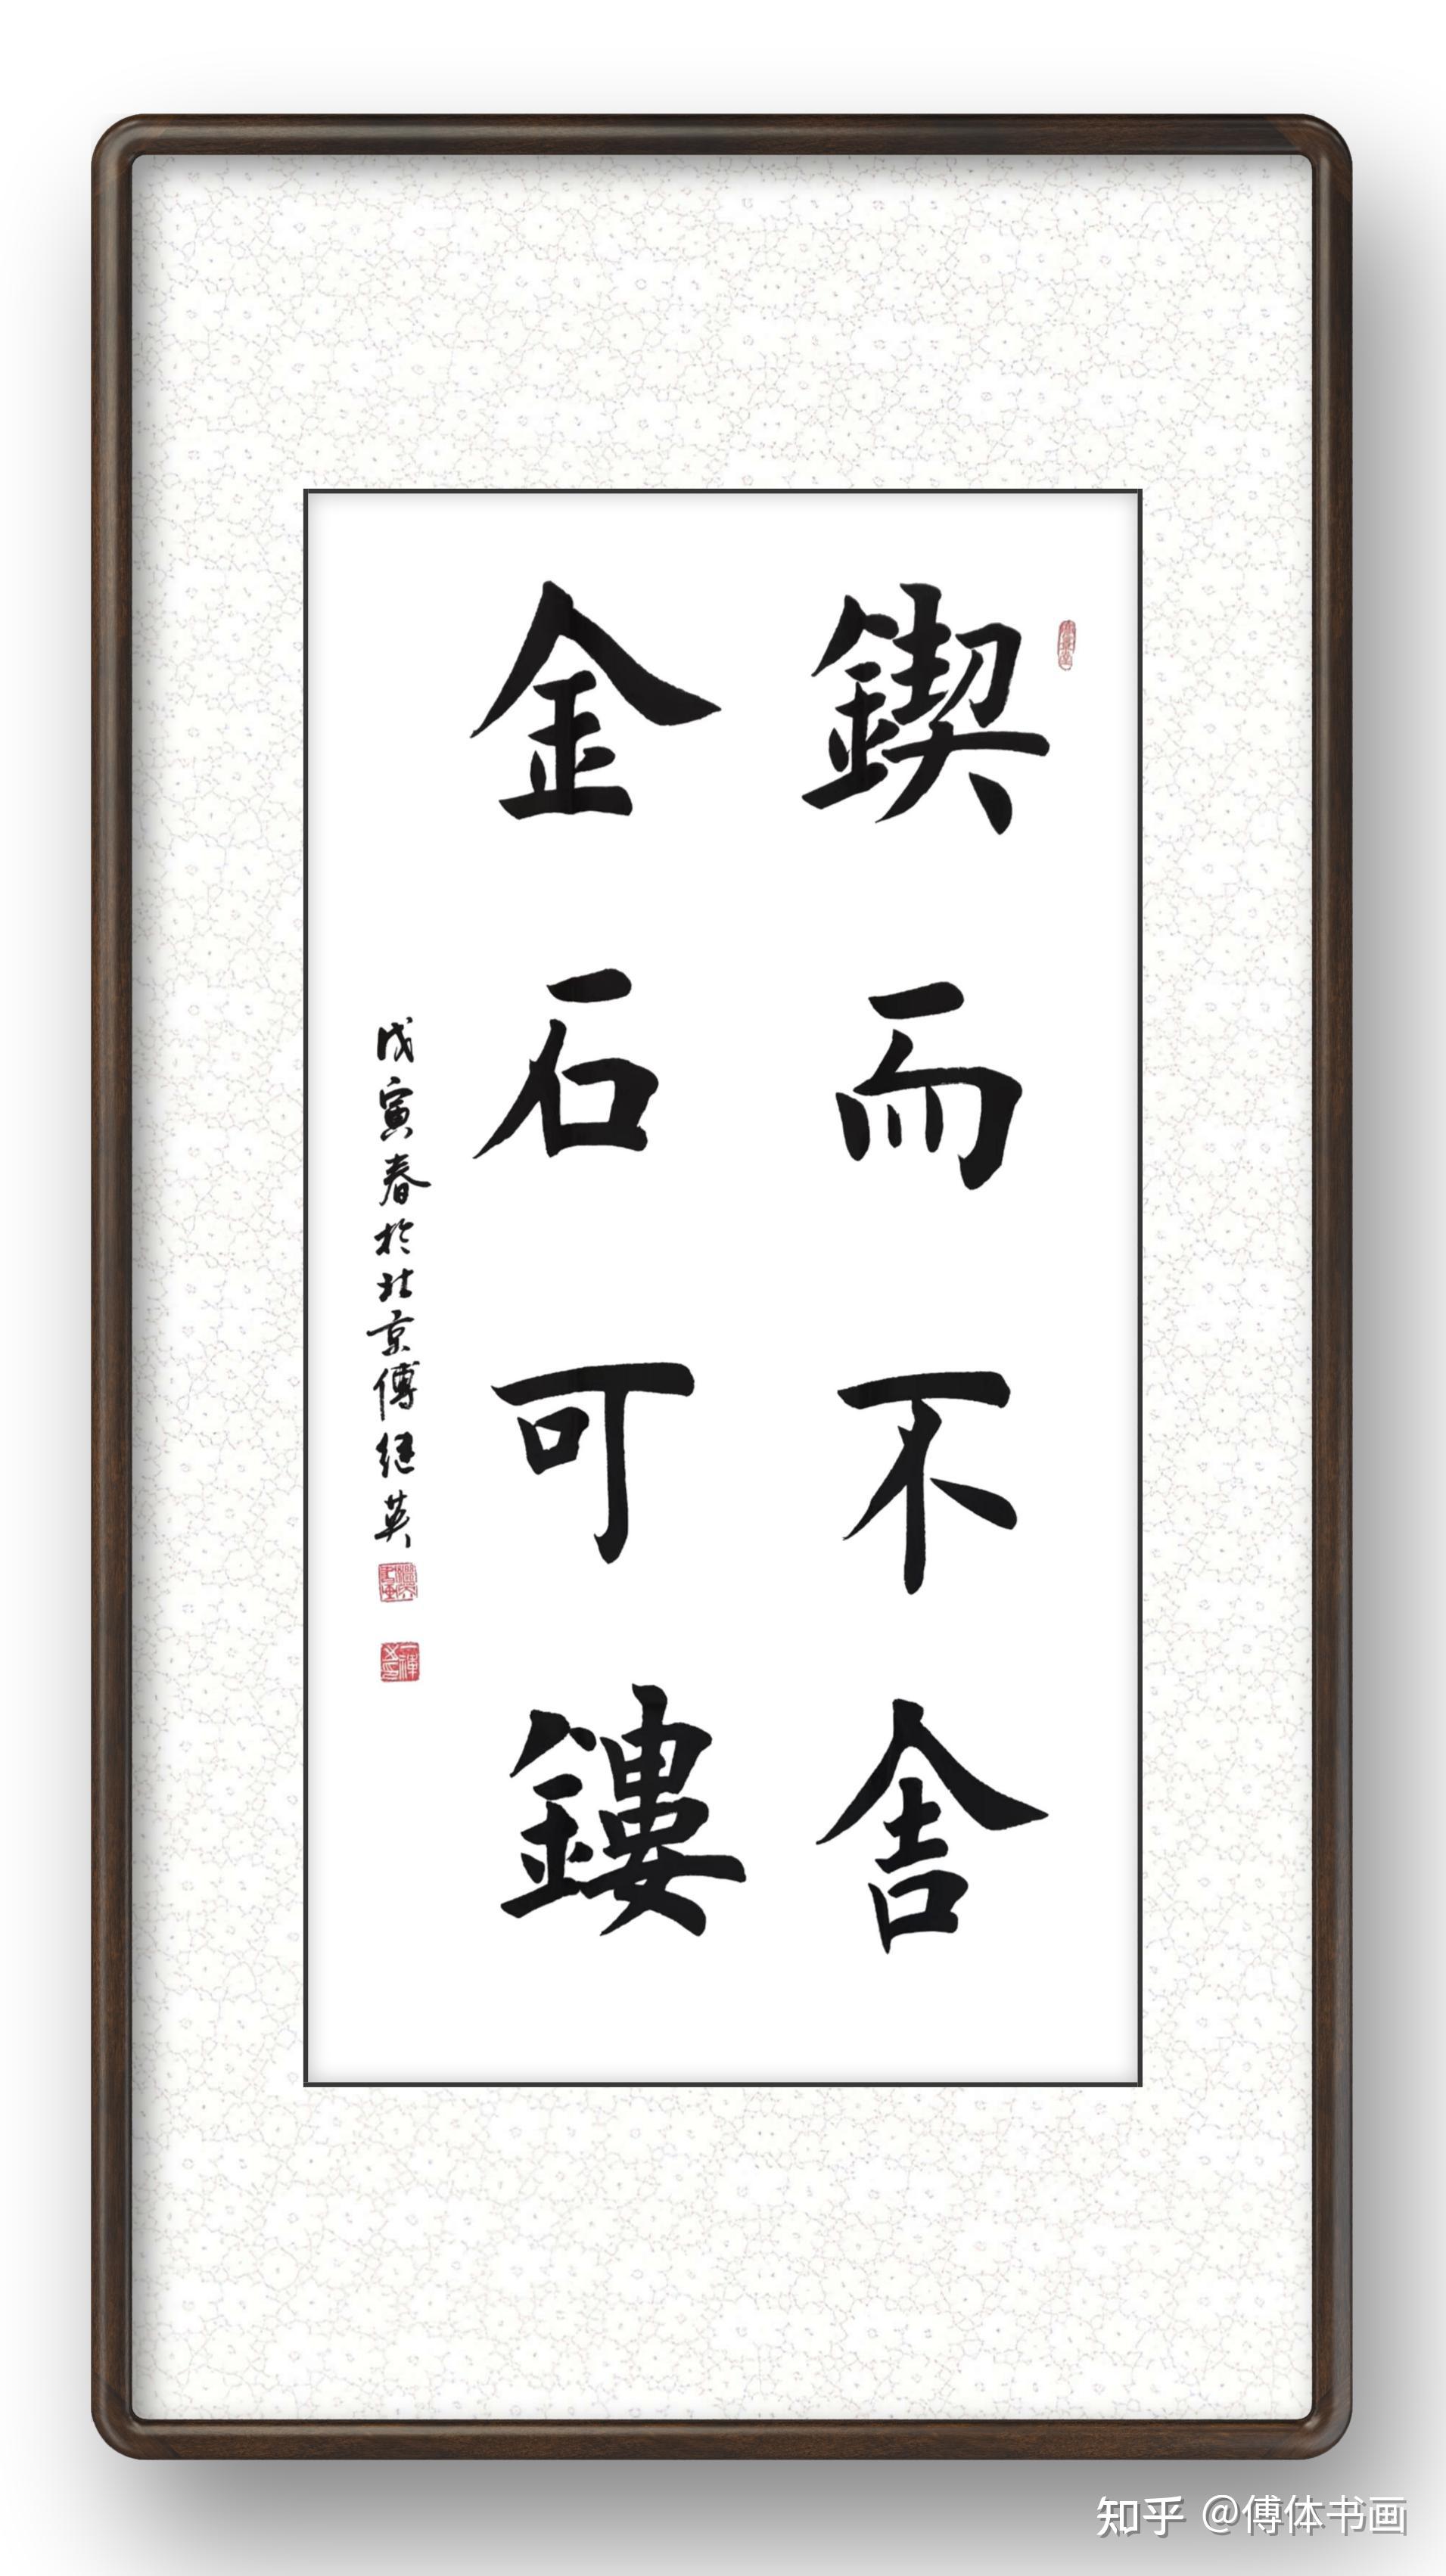 鍥而不舍
金石可鏤
戊寅春於北京傅继英
知乎 @傅体书画